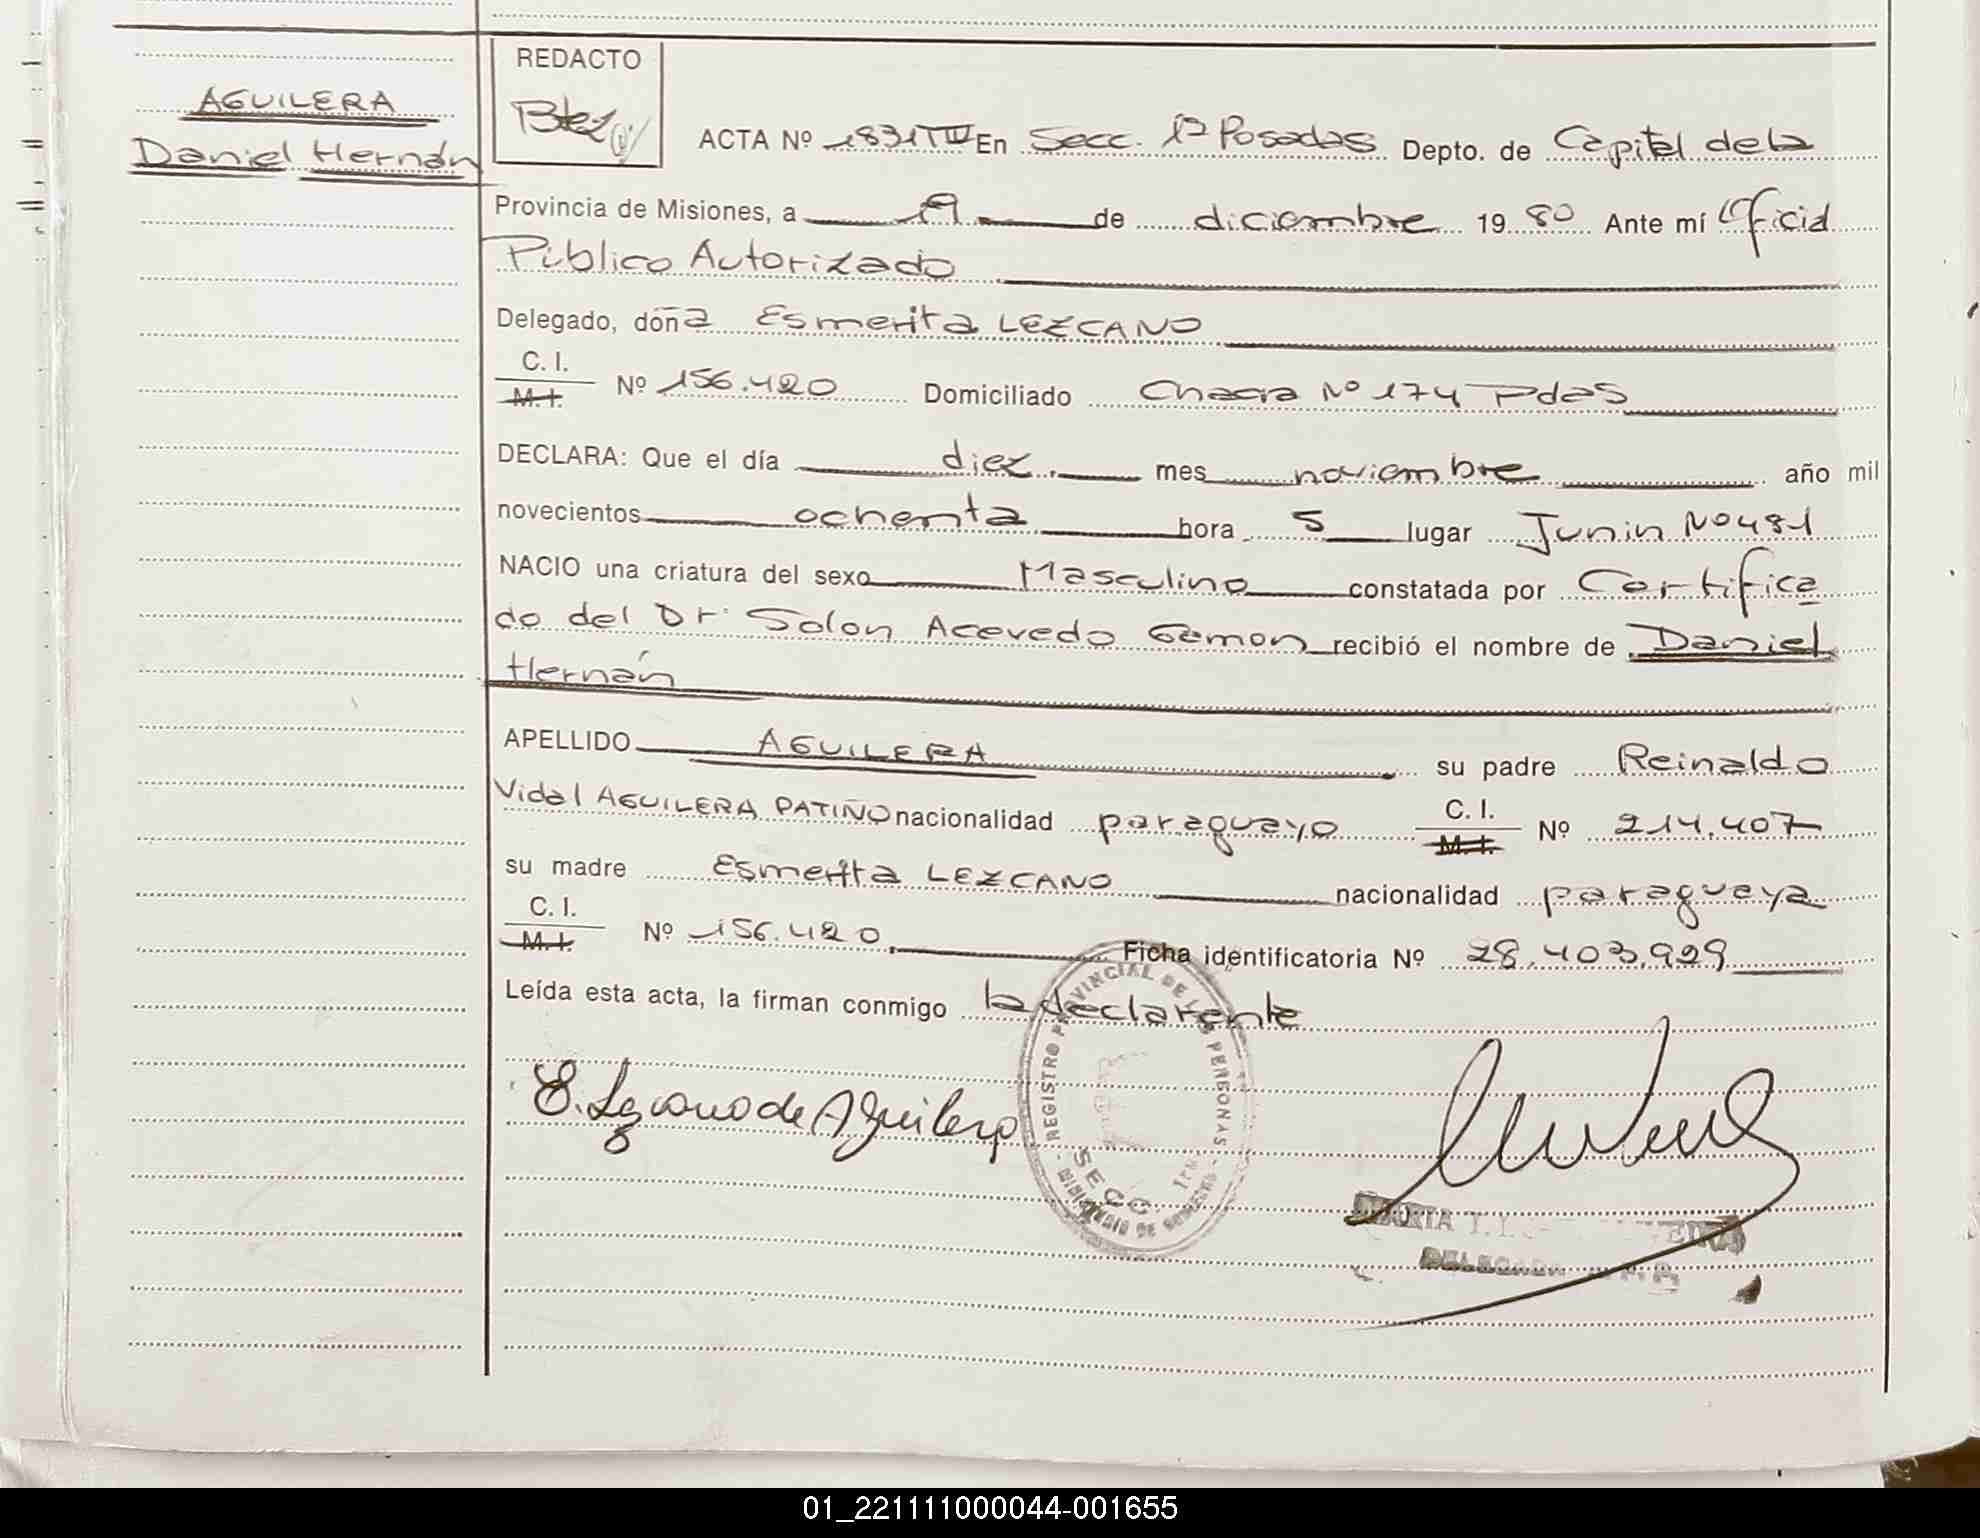 AGUILERA
Daniel Hernán
REDACTO
ACTA Nº 1831 T IV En Secc. 1ª Posadas Depto. de Capital de la
Provincia de Misiones, a de diciembre 1980 Ante mí Oficial
Público Autorizado
Delegado, doña Esmerita LEZCANO
C. I.
M. I. Nº 156.420 Domiciliado Chacra Nº 174 Pdas
DECLARA: Que el día diez mes noviembre año mil
novecientos ochenta hora 5 lugar Junin Nº 481
NACIO una criatura del sexo Masculino constatada por Certifica
do del Dr Solon Acevedo Gamon recibió el nombre de Daniel
Hernán
APELLIDO AGUILERA su padre Reinaldo
Vidal AGUILERA PATIÑO nacionalidad paraguayo C. I. M. I. Nº 214.407
su madre Esmerita LEZCANO nacionalidad paraguaya
C. I.
M. I. Nº 156.420 Ficha identificatoria Nº 28.403.929
Leída esta acta, la firman conmigo la declarante
E. Lezcano de Aguilera
REGISTRO PROVINCIAL DE LAS PERSONAS
SECC.
MINISTERIO DE GOBIERNO
MARTA
DELEGADA
01_221111000044-001655